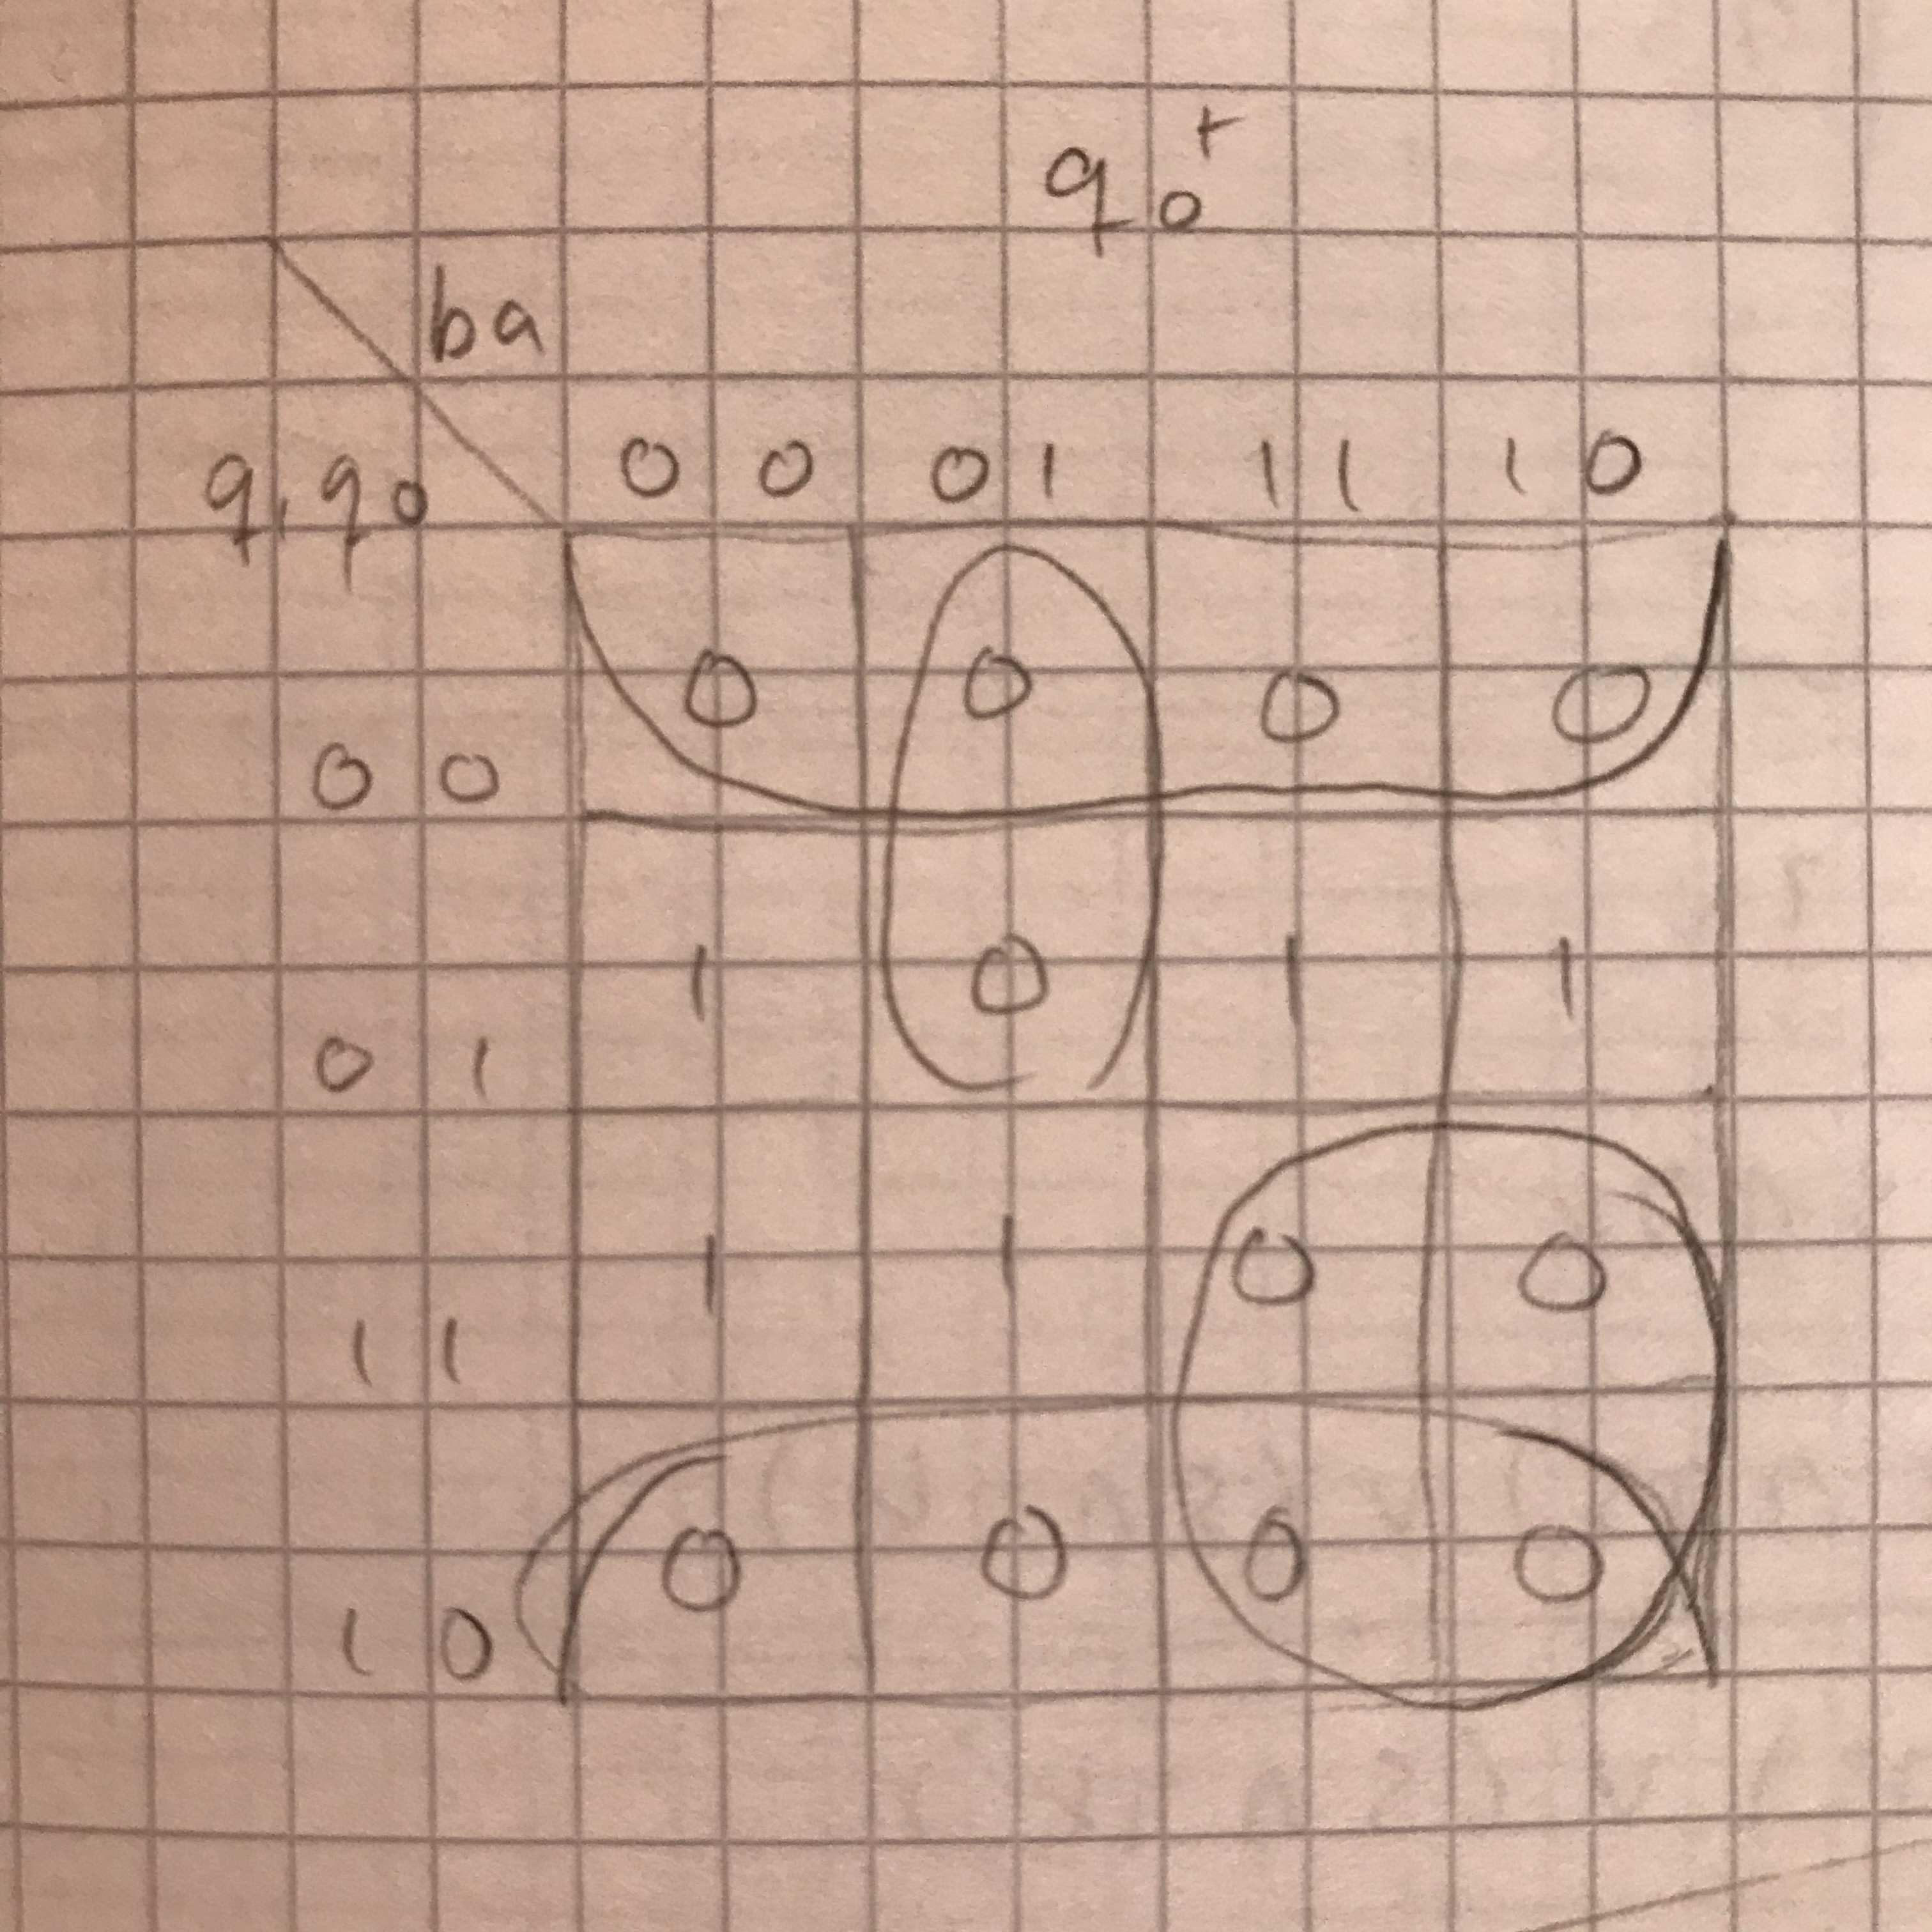 q₀⁺
ba
q₁q₀ 00 01 11 10
00 0 0 0 0
01 1 0 1 1
11 1 1 0 0
10 0 0 0 0